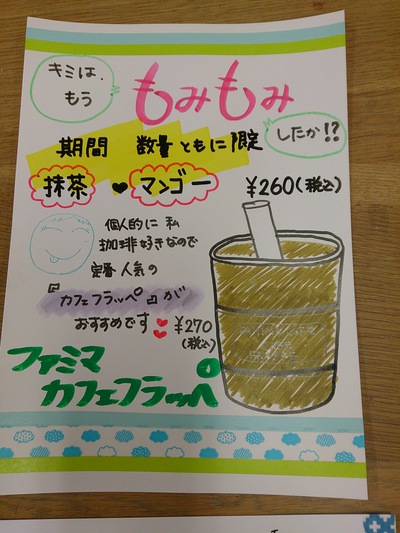 キミは、
もう
もみもみ
したか!?
期間 数量ともに限定
抹茶♥マンゴー ¥260(税込)
個人的に私
珈琲好きなので
定番人気の
『カフェフラッペ』が
おすすめです♥¥270
(税込)
ファミマ
カフェフラッペ